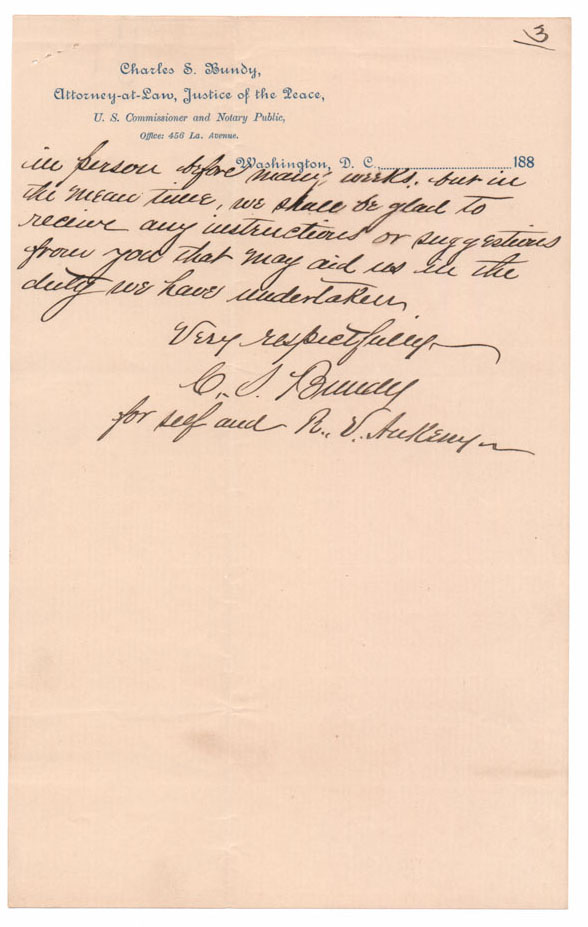 3
Charles S. Bundy,
Attorney-at-Law, Justice of the Peace,
U. S. Commissioner and Notary Public,
Office: 456 La. Avenue.
Washington, D. C. 188
in person before many weeks, but in
the mean time, we shall be glad to
receive any instructions or suggestions
from you that may aid us in the
duty we have undertaken
Very respectfully
C. S. Bundy
for self and R. V. Ankeny